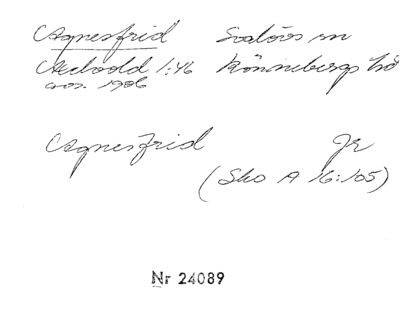 Agnesfrid Svalövs sn
Axelvold 1:46 Rönnebergs hd
avs. 1906
Agnesfrid Jr
(Sko A 16:105)
Nr 24089